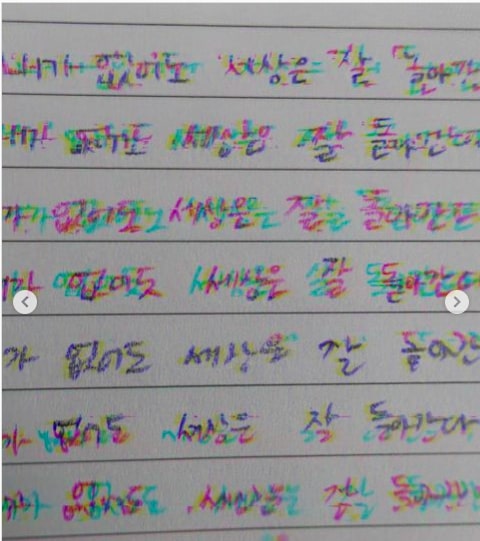 네가 없어도 세상은 잘 돌아간
네가 없어도 세상은 잘 돌아간다
가 없어도 세상은 잘 돌아간다
네가 없어도 세상은 잘 돌아간다
가 없어도 세상은 잘 돌아간
가 없어도 세상은 잘 돌아간다
없어도 세상은 잘 돌아간다